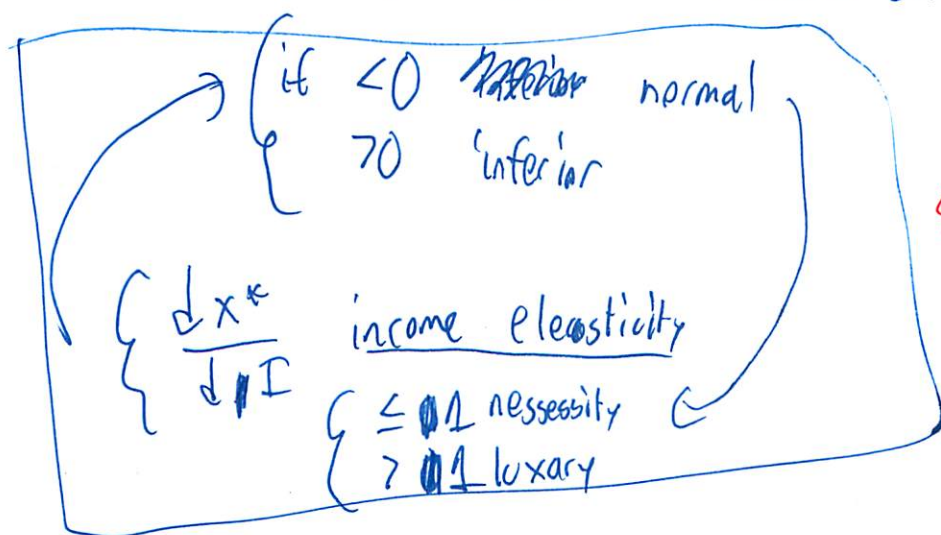 if <0 normal
>0 inferior
dx*
dI
income elecosticity
≤ 1 nessessity
> 1 luxary